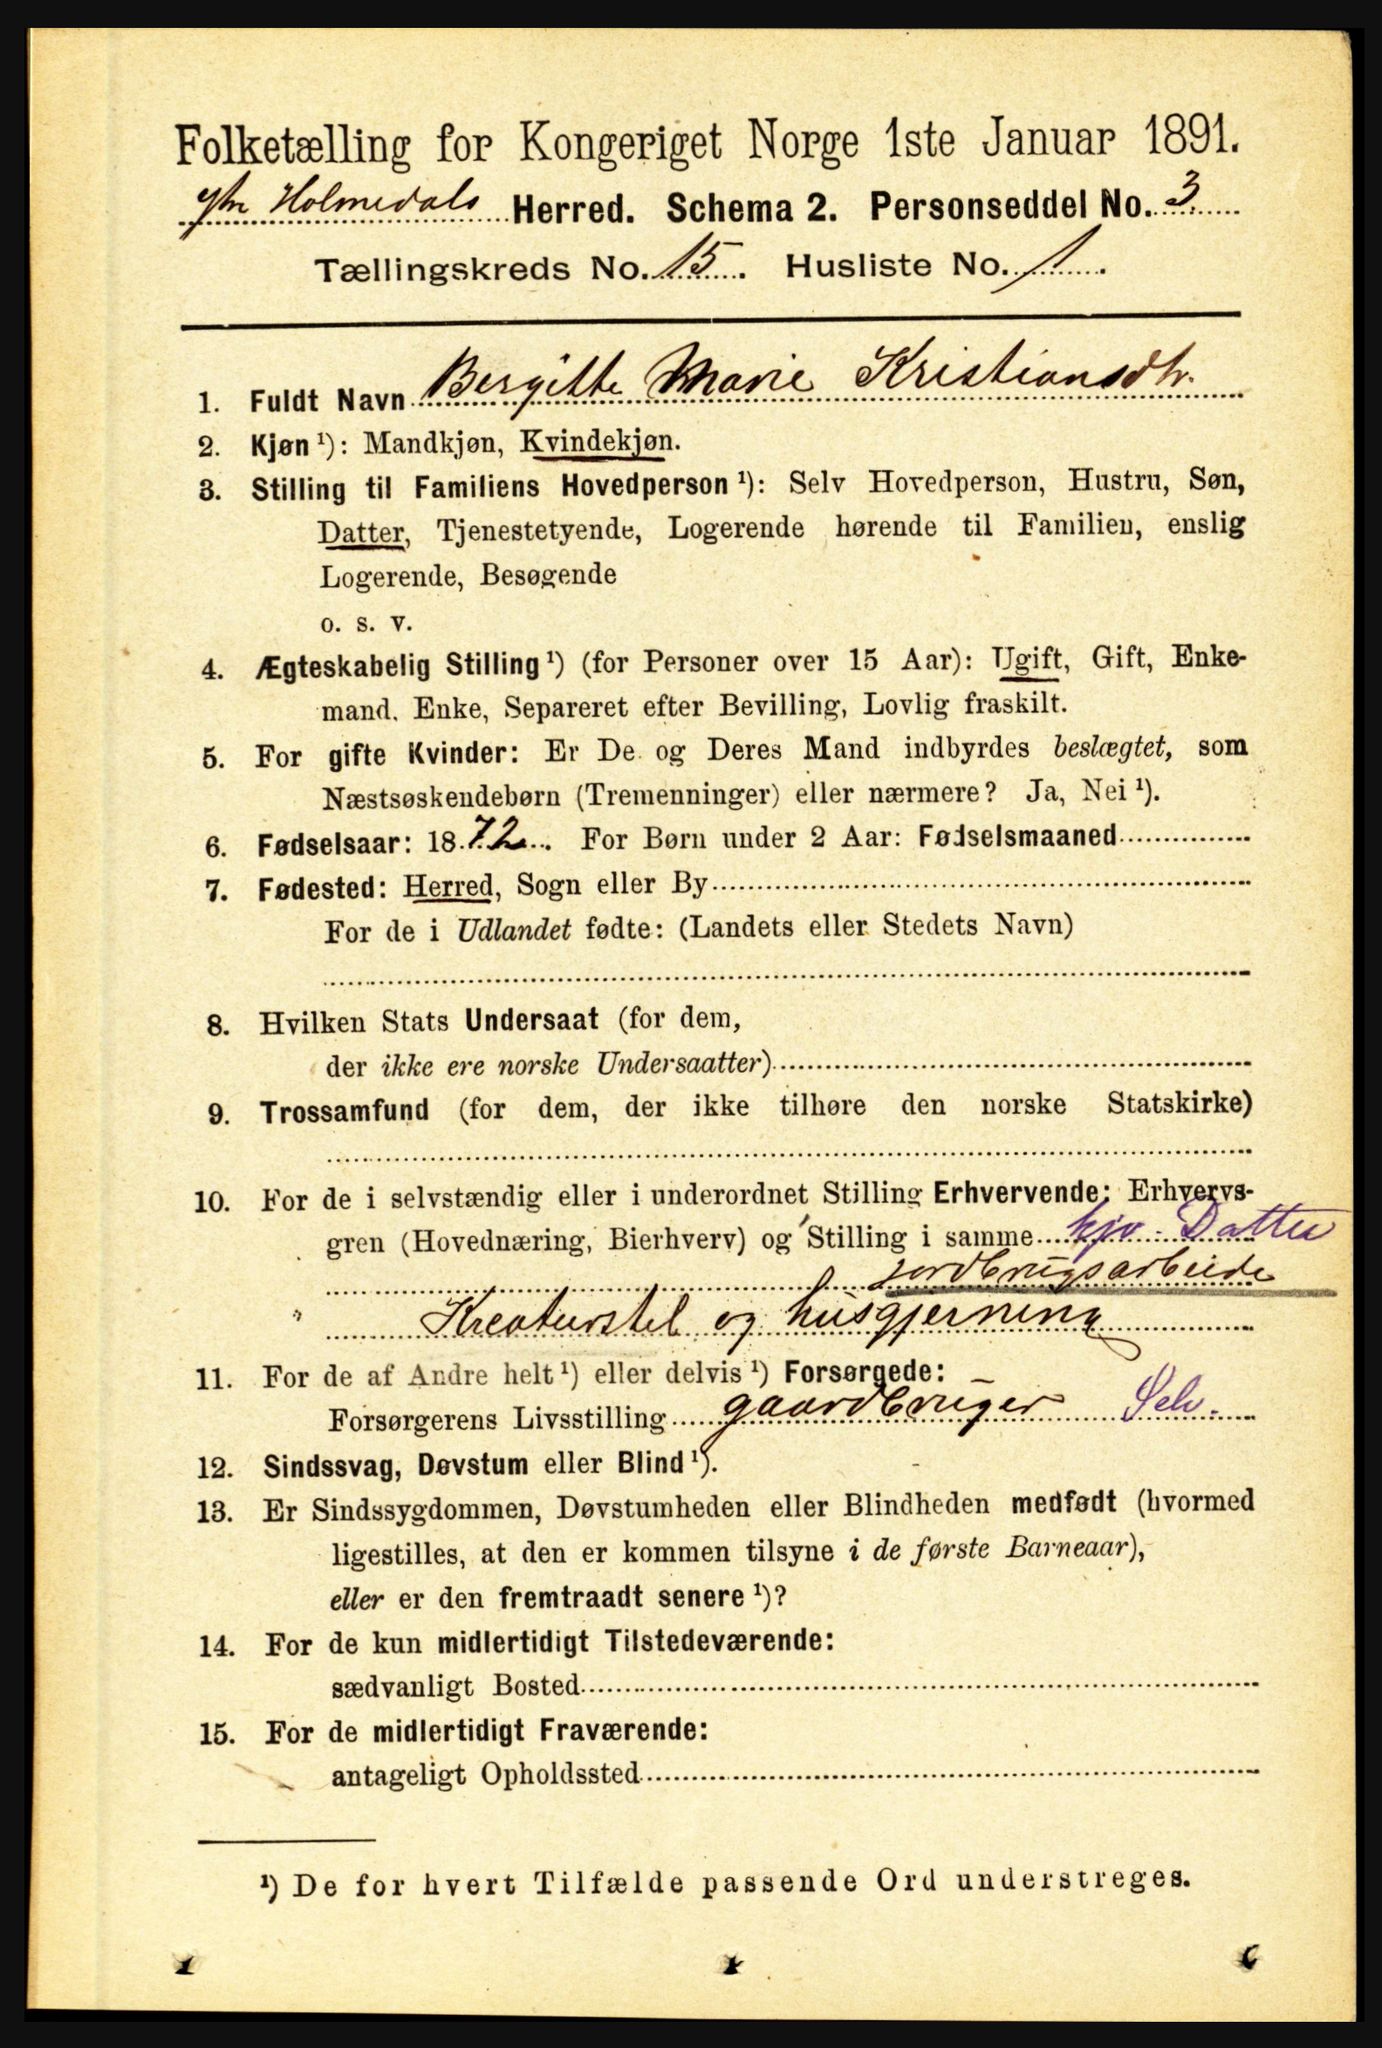 Folketælling for Kongeriget Norge 1ste Januar 1891.
Ytre Holmedals Herred. Schema 2. Personseddel No. 3
Tællingskreds No. 15. Husliste No. 1.
1. Fuldt Navn Bergitte Marie Kristiansdtr.
2. Kjøn ¹): Mandkjøn, Kvindekjøn.
3. Stilling til Familiens Hovedperson ¹): Selv Hovedperson, Hustru, Søn,
Datter, Tjenestetyende, Logerende hørende til Familien, enslig
Logerende, Besøgende
o. s. v.
4. Ægteskabelig Stilling ¹) (for Personer over 15 Aar): Ugift, Gift, Enke-
mand, Enke, Separeret efter Bevilling, Lovlig fraskilt.
5. For gifte Kvinder: Er De og Deres Mand indbyrdes beslægtet, som
Næstsøskendebørn (Tremenninger) eller nærmere? Ja, Nei ¹).
6. Fødselsaar: 1872. For Børn under 2 Aar: Fødselsmaaned
7. Fødested: Herred, Sogn eller By
For de i Udlandet fødte: (Landets eller Stedets Navn)
8. Hvilken Stats Undersaat (for dem,
der ikke ere norske Undersaatter)
9. Trossamfund (for dem, der ikke tilhøre den norske Statskirke)
10. For de i selvstændig eller i underordnet Stilling Erhvervende: Erhvervs-
gren (Hovednæring, Bierhverv) og Stilling i samme hjv. Datter
jordbrugsarbeide
" Kreaturstel og husgjerning
11. For de af Andre helt ¹) eller delvis ¹) Forsørgede:
Forsørgerens Livsstilling gaardbruger Selv.
12. Sindssvag, Døvstum eller Blind ¹).
13. Er Sindssygdommen, Døvstumheden eller Blindheden medfødt (hvormed
ligestilles, at den er kommen tilsyne i de første Barneaar),
eller er den fremtraadt senere ¹)?
14. For de kun midlertidigt Tilstedeværende:
sædvanligt Bosted
15. For de midlertidigt Fraværende:
antageligt Opholdssted
¹) De for hvert Tilfælde passende Ord understreges.